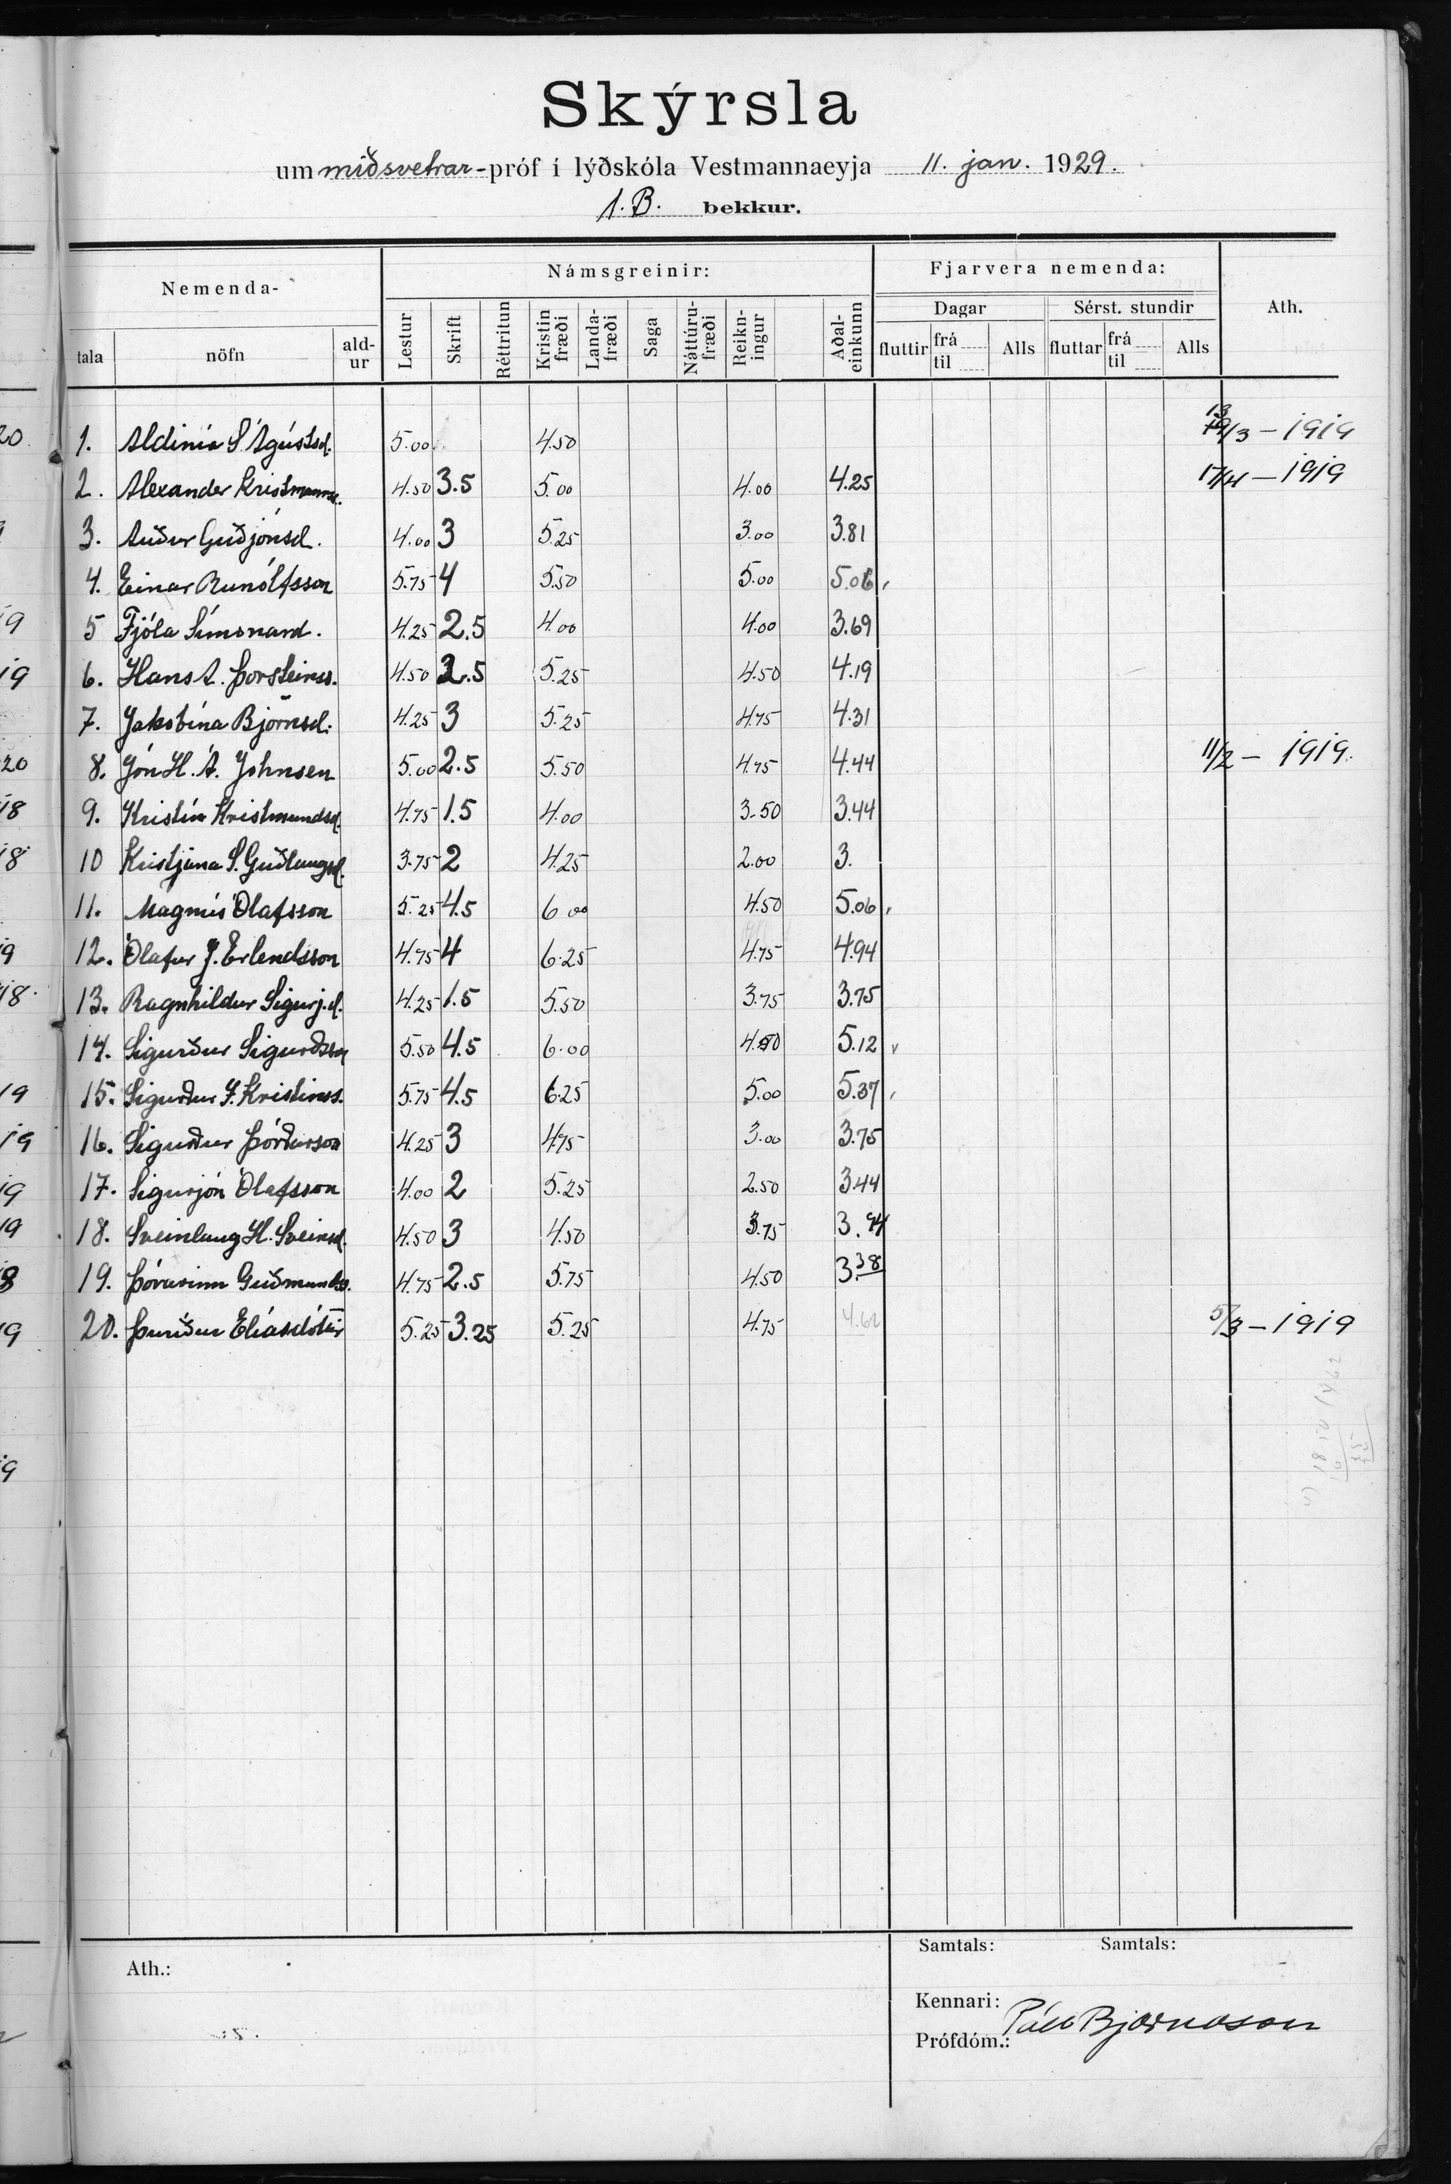 Skýrsla
um miðsvetrar-próf í lýðskóla Vestmannaeyja 11. jan. 1929.
1. B. bekkur.
Nemenda- Námsgreinir: Fjarvera nemenda: Ath.
Dagar Sérst. stundir
tala nöfn ald-ur Lestur Skrift Réttritun Kristin fræði Landa-fræði Saga Náttúru-fræði Reikn-ingur Aðal-einkunn fluttir frá til Alls fluttar frá til Alls
1. Aldinía S Ágústsd. 5.00 4.50 13/3 - 1919
2. Alexander Kristmanns. 4.50 3.5 5.00 4.00 4.25 17/4 - 1919
3. Auður Guðjónsd. 4.00 3 5.25 3.00 3.81
4. Einar Runólfsson 5.75 4 5.50 5.00 5.06
5 Fjóla Símonard. 4.25 2.5 4.00 4.00 3.69
6. Hans A. Þorsteinss. 4.50 2.5 5.25 4.50 4.19
7. Jakobína Björnsd. 4.25 3 5.25 4.75 4.31
8. Jón H. Á. Johnsen 5.00 2.5 5.50 4.75 4.44 11/2 - 1919.
9. Kristín Kristmundsd. 4.75 1.5 4.00 3.50 3.44
10 Kristjana S. Guðlaugsd. 3.75 2 4.25 2.00 3.
11. Magnús Ólafsson 5.25 4.5 6 00 4.50 5.06
12. Ólafur J. Erlendsson 4.75 4 6.25 4.75 4.94
13. Ragnhildur Sigurj.d. 4.25 1.5 5.50 3.75 3.75
14. Sigurður Sigurðsson 5.50 4.5 6.00 4.50 5.12 v
15. Sigurður J. Kristinss. 5.75 4.5 6.25 5.00 5.37
16. Sigurður Þórðarson 4.25 3 4.75 3.00 3.75
17. Sigurjón Ólafsson 4.00 2 5.25 2.50 3.44
18. Sveinlaug H. Sveinsd. 4.50 3 4.50 3.75 3.94
19. Þórarinn Guðmundss. 4.75 2.5 5.75 4.50 3.38
20. Þuríður Elíasdóttir 5.25 3.25 5.25 4.75 4.62 5/3 - 1919
Samtals: Samtals:
Ath.:
Kennari: Páll Bjarnason
Prófdóm.: